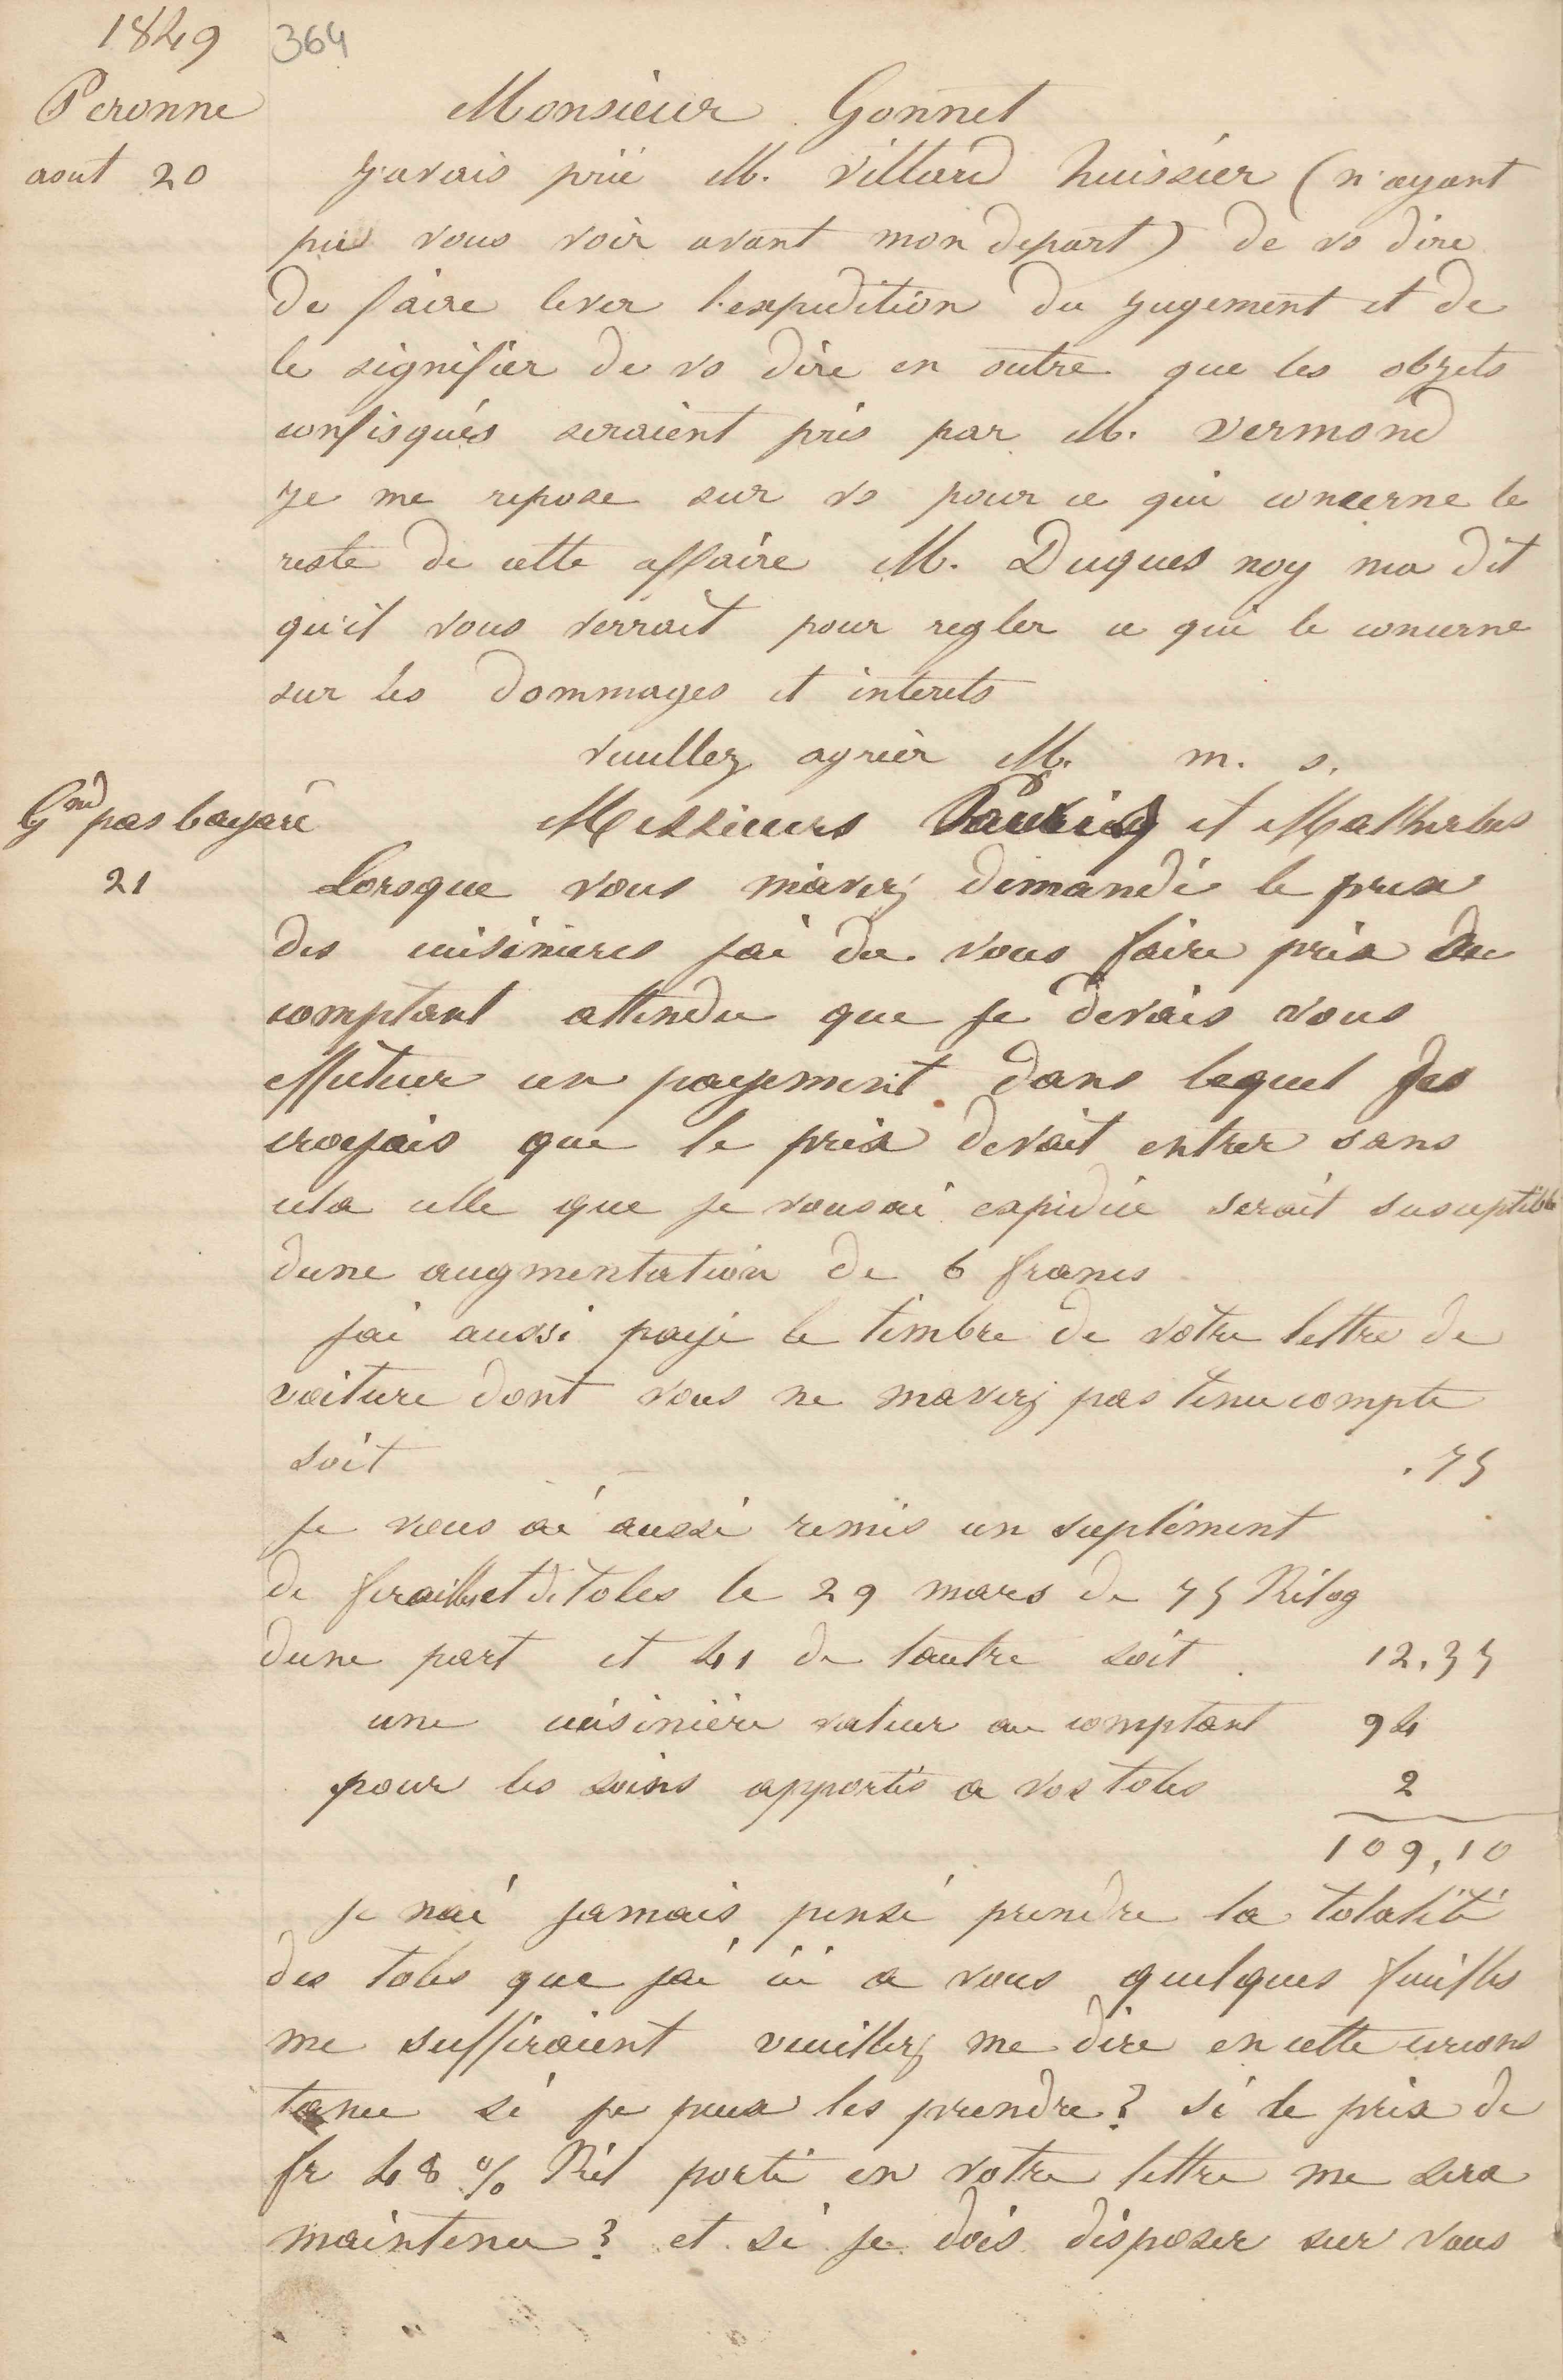 1849
364
Peronne
Monsieur Gonnet
aout 20
J'avais prié M. Villard huissier (n'ayant
pu vous voir avant mon depart) de vs dire
de faire lever l'expedition du jugement et de
le signifier de vs dire en outre que les objets
confisqués seraient pris par M. Vermond
Je me repose sur vs pour ce qui concerne le
reste de cette affaire M. Duques noy ma dit
qu'il vous verrait pour regler ce qui le concerne
sur les dommages et interets
veuillez agréer M. m. s.
Gnd pas bayare
Messieurs et Malherbes
21
Lorsque vous m'avez demandé le prix
des cuisinieres jai du vous faire prix du
comptant attendu que je devais vous
effectuer un payement dans lequel je
croyais que le prix devait entrer sans
cela celle que je vous ai expediée serait susceptible
dune augmentation de 6 francs
jai aussi payé le timbre de votre lettre de
voiture dont vous ne mavez pas tenu compte
soit .75
je vous ai aussi remis un suplément
de feraille et de toles le 29 mars de 75 Kilog
dune part et 41 de lautre soit 12.35
une cuisinière valeur au comptant 94
pour les soins apportés a vos toles 2
109,10
je nai jamais pensé prendre la totalité
des toles que jai ici a vous quelques feuilles
me suffiraient veuillez me dire en cette circons
tance si je peux les prendre? si le prix de
fr 48 % Kil porté en votre lettre me sera
maintenu? et si je dois disposer sur vous